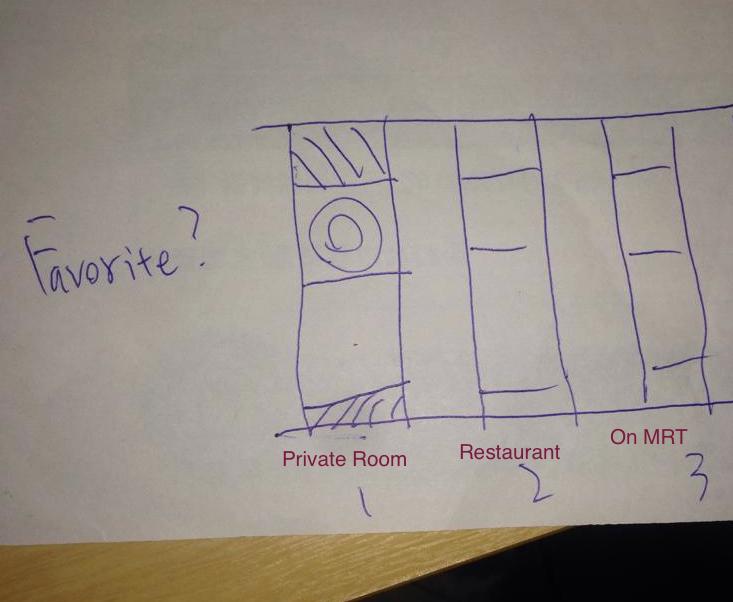 Favorite?
Private Room
Restaurant
On MRT
1
2
3